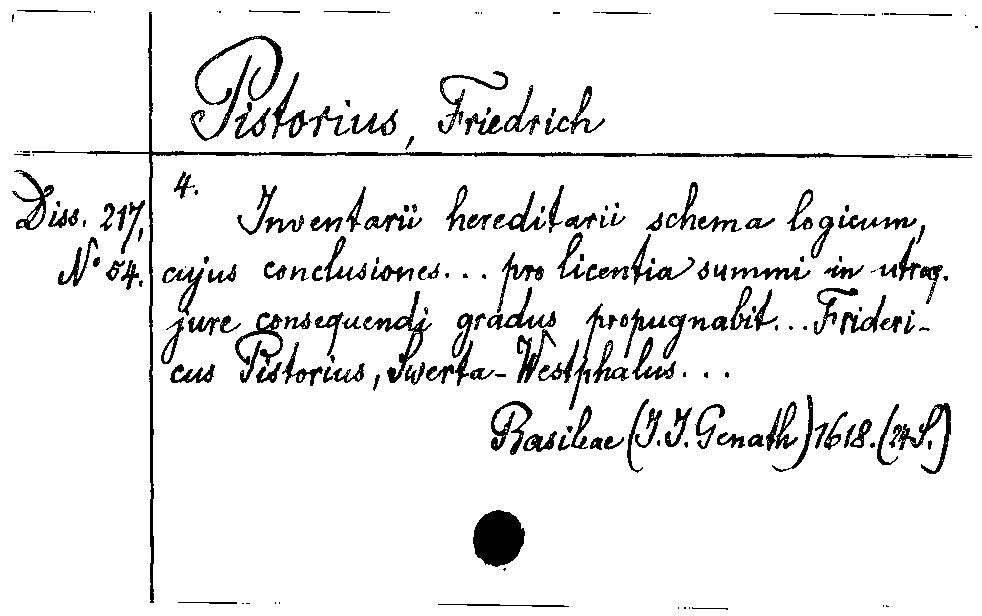 Pistorius, Friedrich
Diss. 217,
N° 54.
4.
Inventarii hereditarii schema logicum,
cujus conclusiones... pro licentia summi in utroq.
jure consequendi gradus propugnabit... Frideri-
cus Pistorius, Swerta-Westphalus...
Basileae (J. J. Genath) 1618. (24 S.)